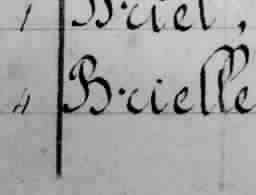 1 Briel,
4 Brielle